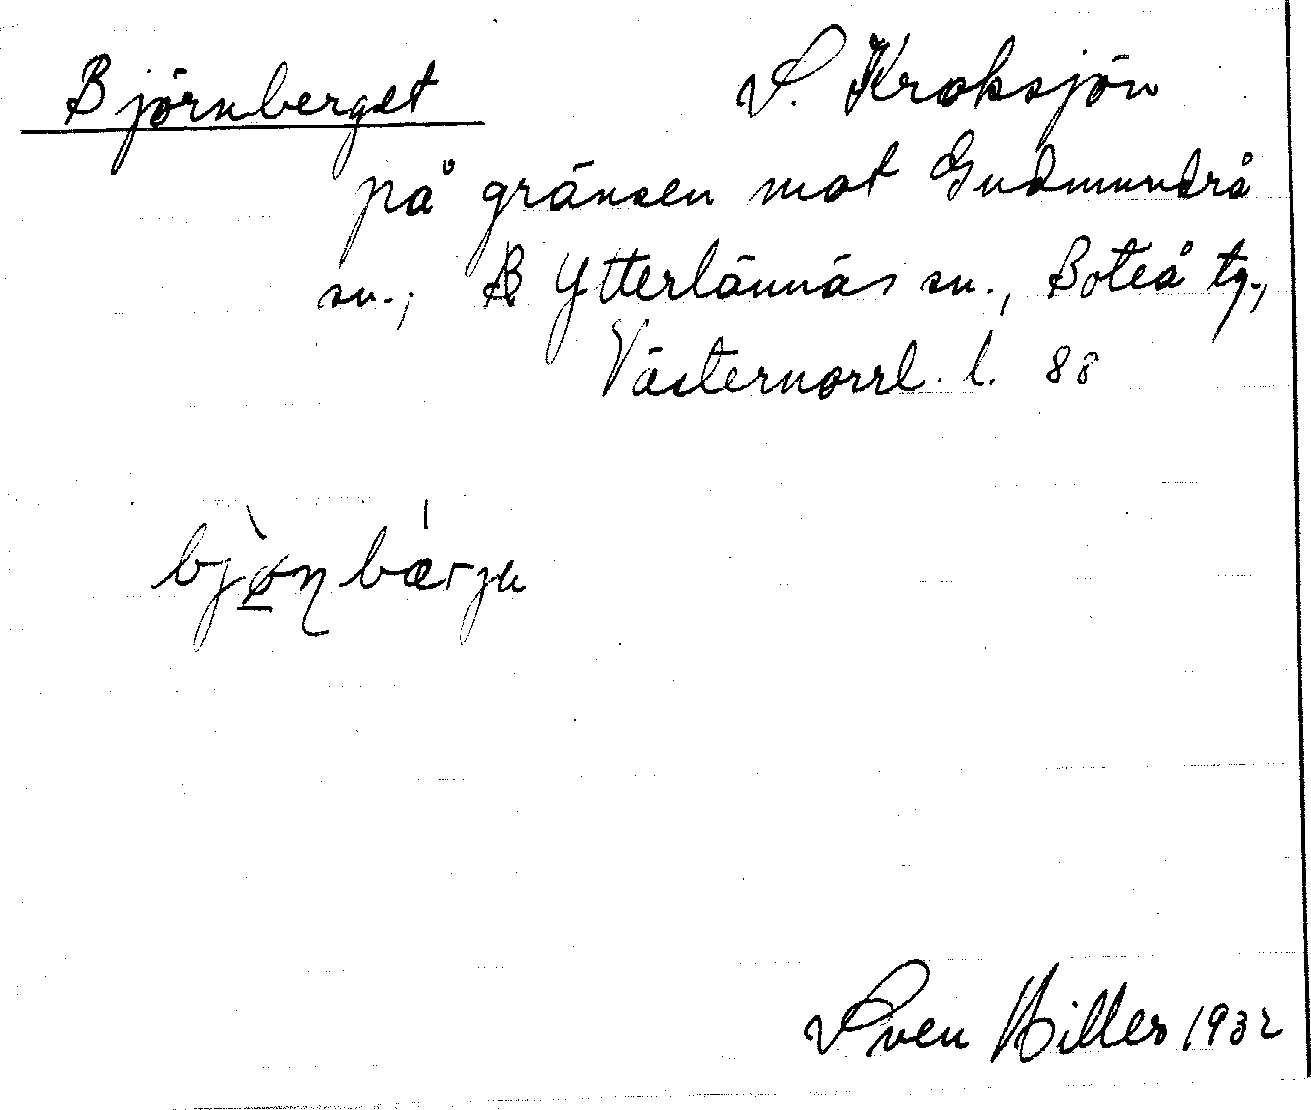 Björnberget S. Kroksjön
på gränsen mot Gudmundrå
sn., Ytterlännäs sn., Boteå tg.,
Västernorrl. l. 88
Sven Hiller 1932